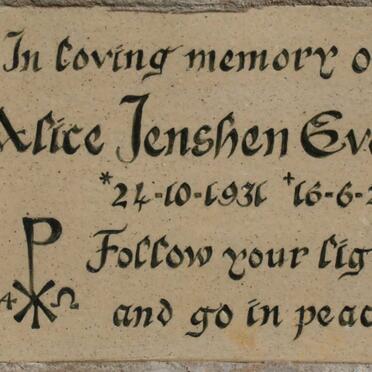 In loving memory o
Alice Jenshen Eve
*24-10-1931 +16-6-2
Follow your lig
Α Ω
and go in peac